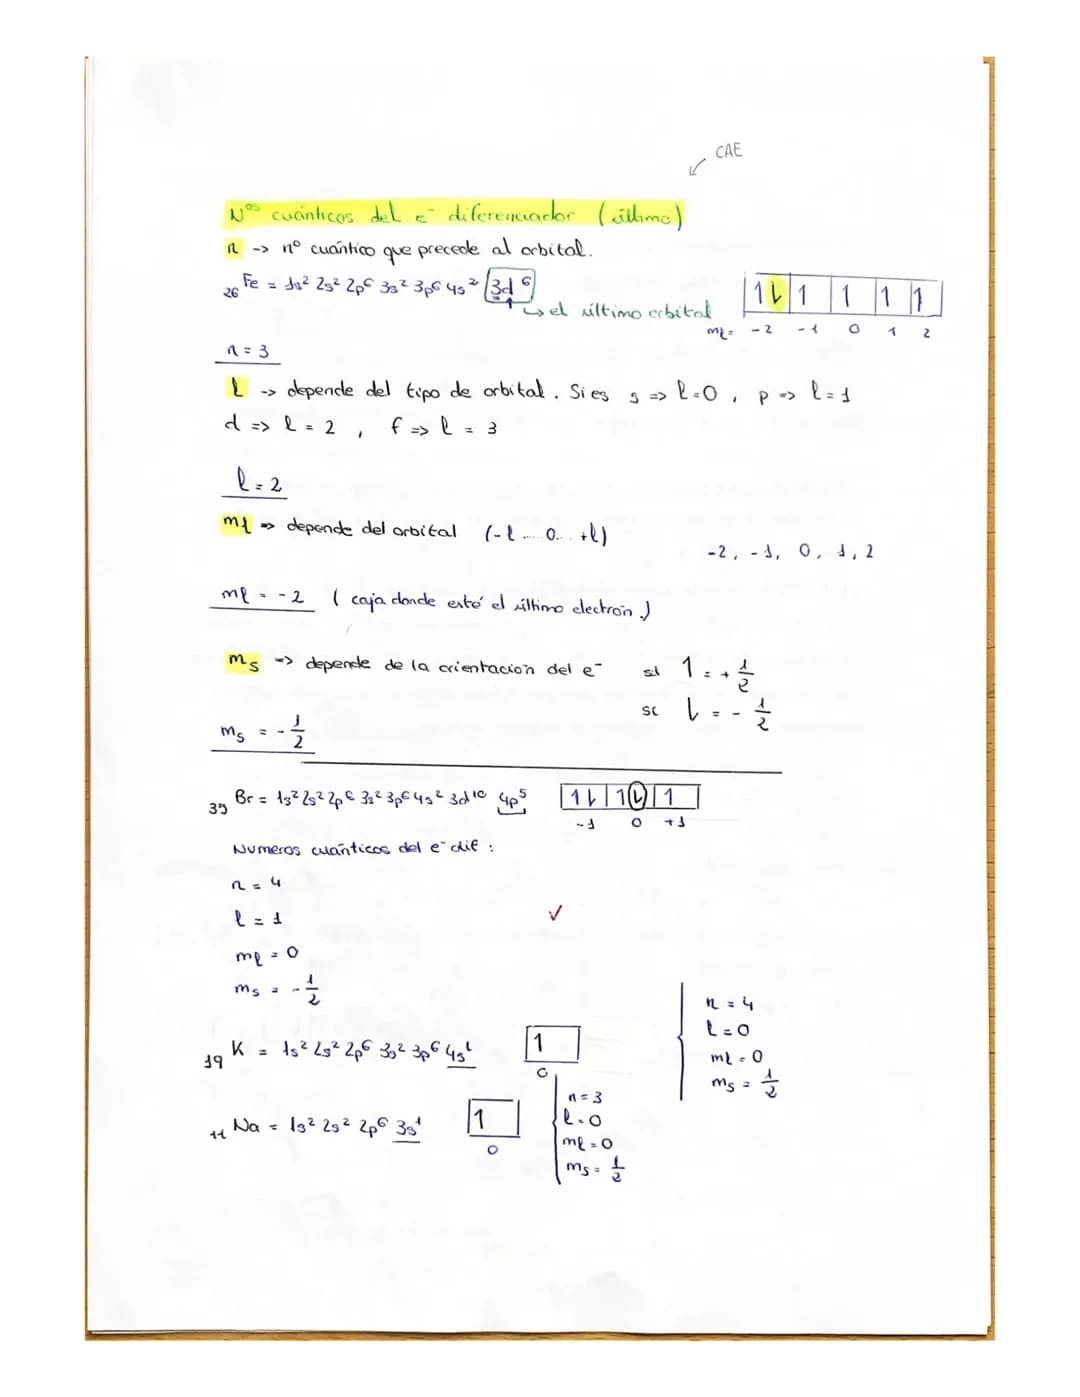 CAE
Nos cuánticos del e- diferenciador (último)
n -> nº cuántico que precede al orbital.
26 Fe = 1s² 2s² 2p⁶ 3s² 3p⁶ 4s² 3d⁶
↳ el último orbital
1↓ 1 1 1 1
ml= -2 -1 0 1 2
n = 3
l -> depende del tipo de orbital. Si es s => l=0, p => l=1
d => l = 2, f => l = 3
l = 2
ml => depende del orbital (-l .... 0... +l)
-2, -1, 0, 1, 2
ml = -2 (caja donde esté el último electrón.)
ms => depende de la orientación del e- si 1 = + 1/2
si ↓ = - 1/2
ms = - 1/2
35 Br = 1s² 2s² 2p⁶ 3s² 3p⁶ 4s² 3d¹⁰ 4p⁵ 1↓ 1↓ 1
-1 0 +1
Numeros cuánticos del e- dif :
n = 4
l = 1
ml = 0
ms = - 1/2
19 K = 1s² 2s² 2p⁶ 3s² 3p⁶ 4s¹ 1
0
n = 4
l = 0
ml = 0
ms = 1/2
11 Na = 1s² 2s² 2p⁶ 3s¹ 1
0
n = 3
l = 0
ml = 0
ms = 1/2